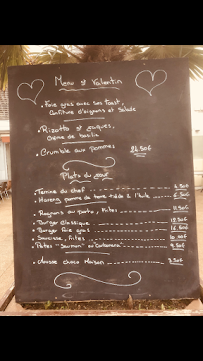 Menu St Valentin
• Foie gras avec son toast,
Confiture d'oignons et Salade
• Rizotto St Jacques,
Crème de basilic
• Crumble aux pommes 24.50€
Plats du jour
• Terrine du chef 6.50€
• Harengs pomme de terre tiède à l'huile 6.50€
• Rognons au porto, frites
• Burger classique
• Burger foie gras 16.50€
• Saucisse, frites
• Pates "Saumon" ou "Carbonara" 9.50€
• Mousse choco Maison 3.50€